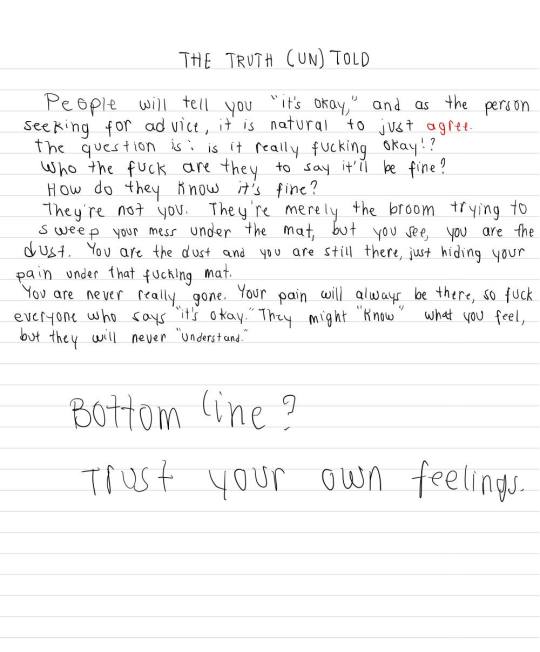 THE TRUTH (UN)TOLD
People will tell you "it's okay," and as the person
seeking for advice, it is natural to just agree.
the question is: is it really fucking okay!?
Who the fuck are they to say it'll be fine?
How do they know it's fine?
They're not you. They're merely the broom trying to
sweep your mess under the mat, but you see, you are the
dust. You are the dust and you are still there, just hiding your
pain under that fucking mat.
You are never really gone. Your pain will always be there, so fuck
everyone who says "it's okay." They might "know" what you feel,
but they will never "understand."
Bottom line?
Trust your own feelings.